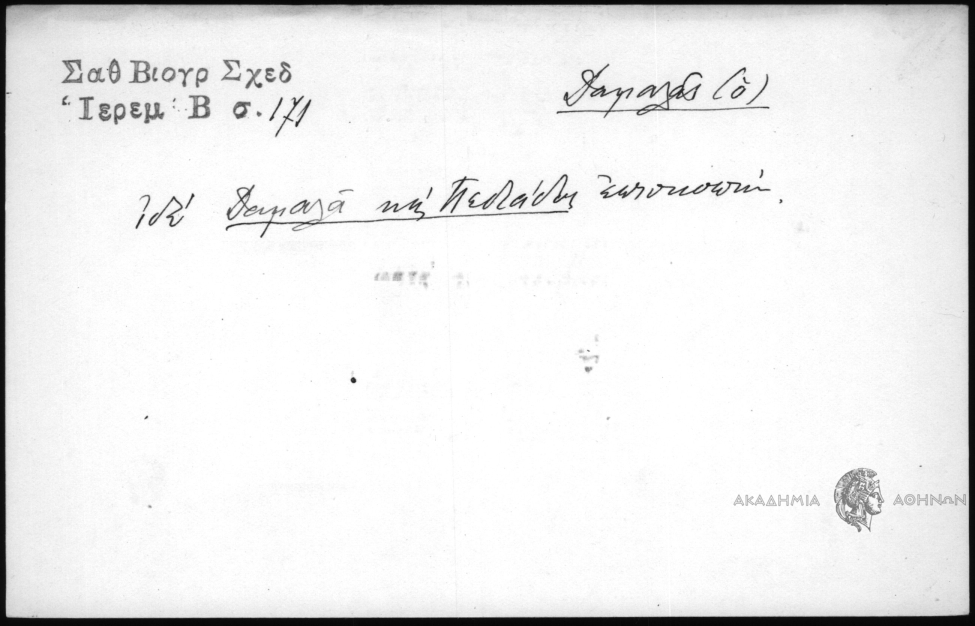 Σαθ Βιογρ Σχεδ
Ἱερεμ Β σ. 171
Δαμαλᾶς (ὁ)
Ἰδὲ Δαμαλᾶ καὶ Πεδιάδος ἐπισκοπὴ.
ΑΚΑΔΗΜΙΑ ΑΘΗΝΩΝ